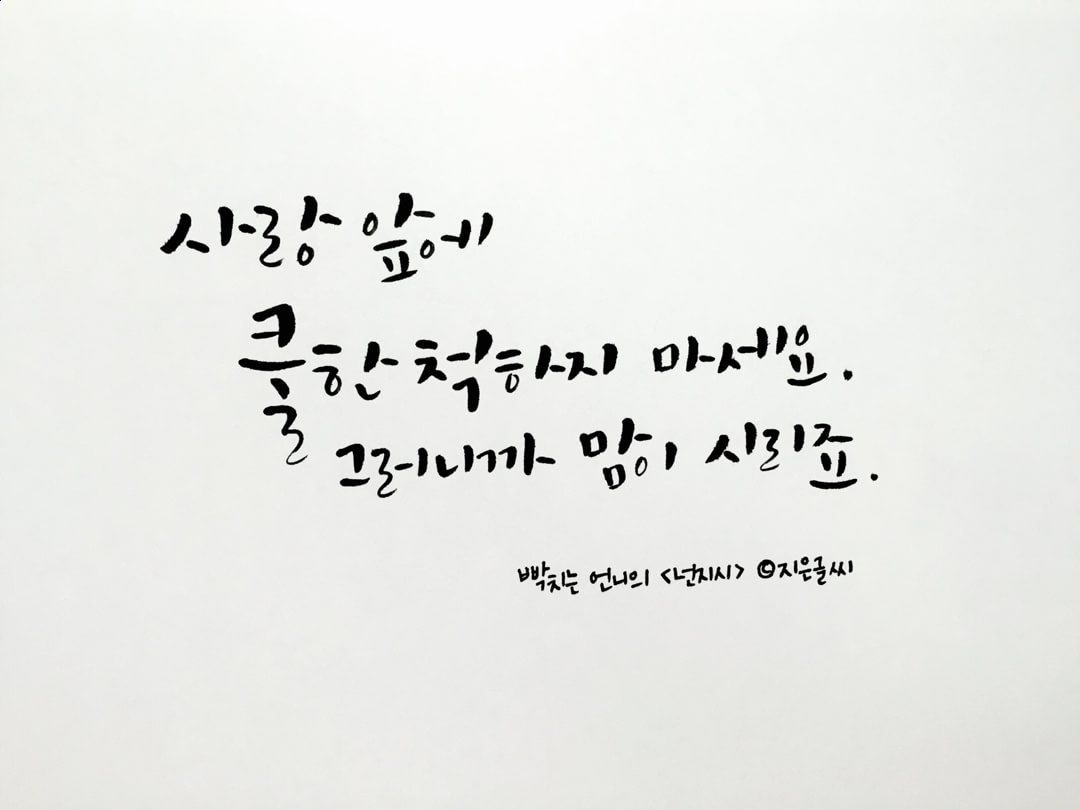 사랑 앞에
쿨한 척하지 마세요.
그러니까 맘이 시리죠.
빡치는 언니의 <넌지시> ©지은글씨